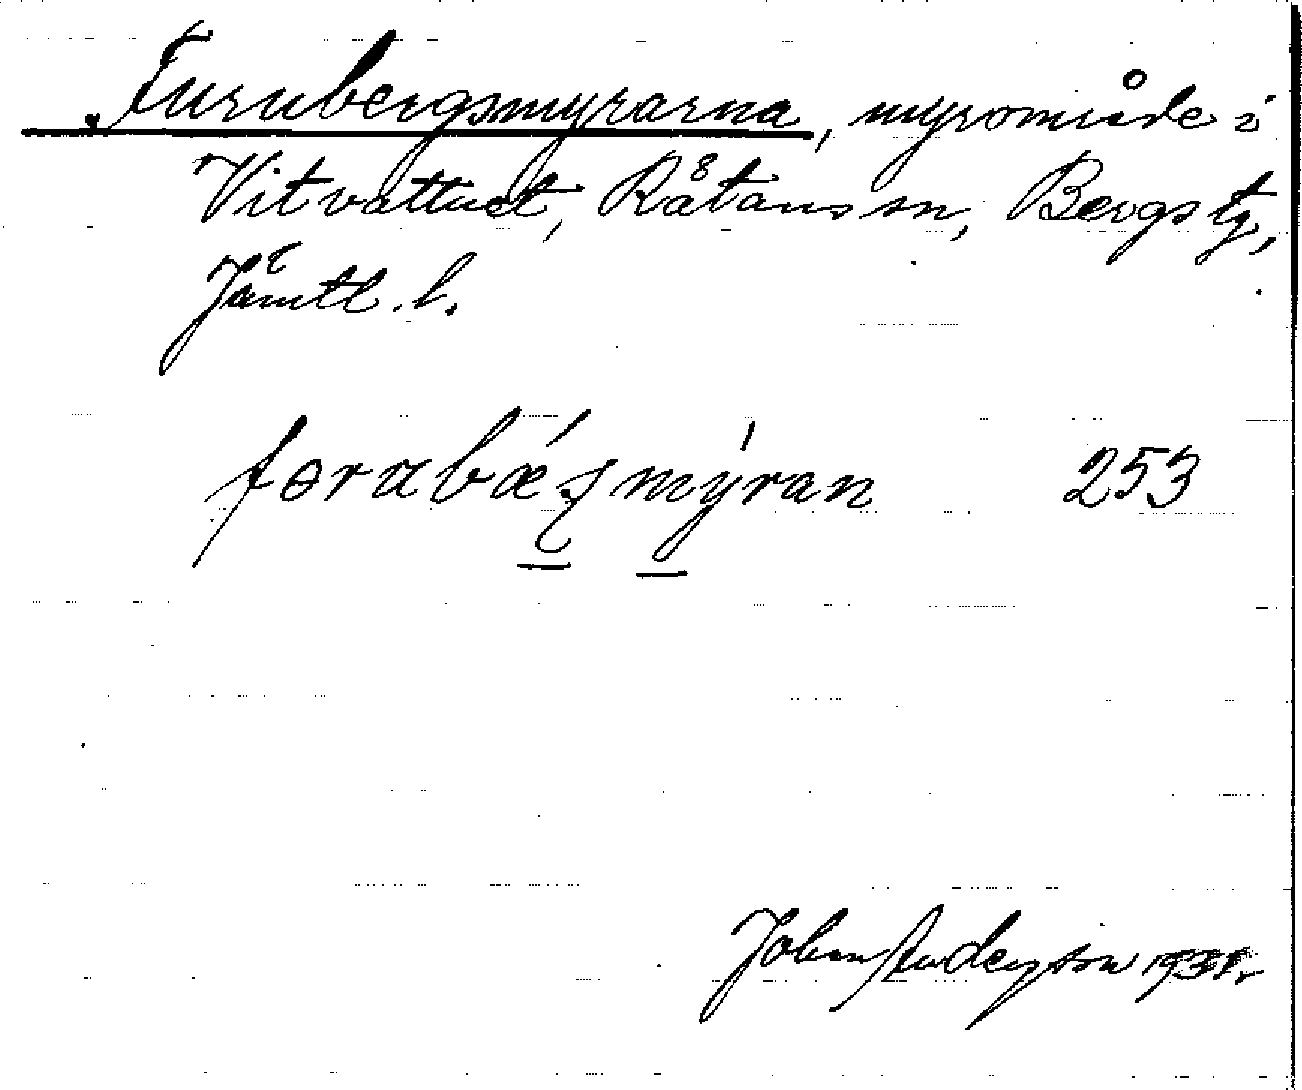 Furubergsmyrarna, myrområde i
Vitvattnet, Råtans sn, Bergs tg,
Jämtl. l.
forabǽʂmýran 253
Johan Anderson